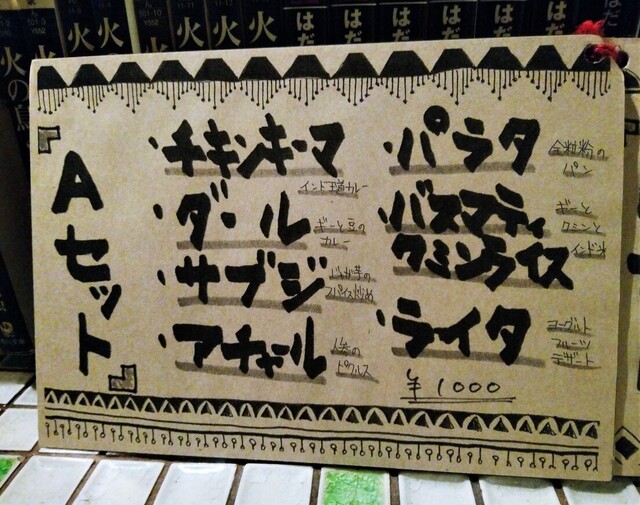 『Aセット』
・チキンキーマ
インド王道カレー
・ダール
ギーと豆の
カレー
・サブジ
じゃが芋の
スパイス炒め
・アチャール
人参の
ピクルス
・パラタ
全粒粉の
パン
・バスマティ
クミンライス
ギーと
クミンと
インド米
・ライタ
ヨーグルト
フルーツ
デザート
¥1000
火の鳥
火
火
火
はだ
はだ
はだ
はだ
はだ